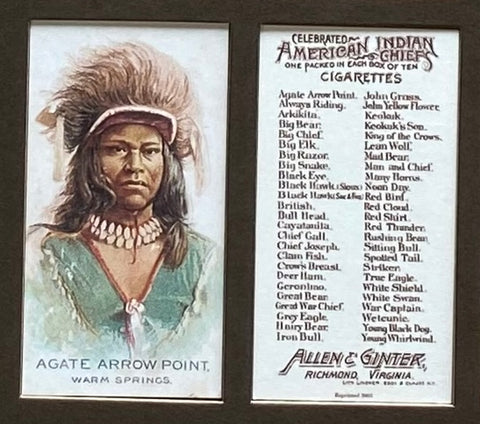 AGATE ARROW POINT,
WARM SPRINGS.
CELEBRATED
AMERICAN INDIAN
CHIEFS
ONE PACKED IN EACH BOX OF TEN
CIGARETTES
Agate Arrow Point.
Always Riding.
Arkikita.
Big Bear.
Big Chief.
Big Elk.
Big Razor.
Big Snake.
Black Eye.
Black Hawk (Sioux)
Black Hawk (Sac & Fox)
British.
Bull Head.
Cayatanita.
Chief Gall.
Chief Joseph.
Clam Fish.
Crow's Breast.
Deer Ham.
Geronimo.
Great Bear.
Great War Chief.
Grey Eagle.
Hairy Bear.
Iron Bull.
John Grass.
John Yellow Flower.
Keokuk.
Keokuk's Son.
King of the Crows.
Lean Wolf.
Mad Bear.
Man and Chief.
Many Horns.
Noon Day.
Red Bird.
Red Cloud.
Red Shirt.
Red Thunder.
Rushing Bear.
Sitting Bull.
Spotted Tail.
Striker.
True Eagle.
White Shield.
White Swan.
War Captain.
Wetcunie.
Young Black Dog.
Young Whirlwind.
ALLEN & GINTER,
RICHMOND, VIRGINIA.
LITH LINDNER EDDY & CLAUSS N.Y.